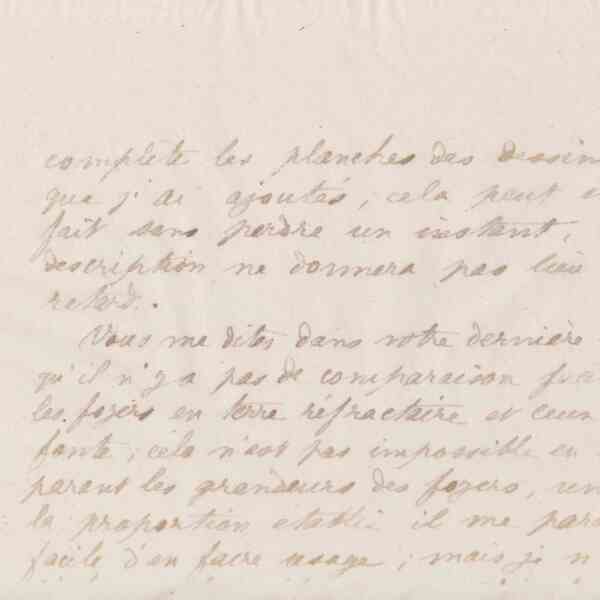 complète les planches des dessin
que j'ai ajoutés, cela peut
fait sans perdre un instant,
description ne donnera pas lieu
retard.
Vous me dites dans votre dernière
qu'il n'y a pas de comparaison
les foyers en terre réfractaire et ceux
fonte, cela n'est pas impossible en
parant les grandeurs des foyers, un
la proportion établi il me para
facile d'en faire usage; mais je n